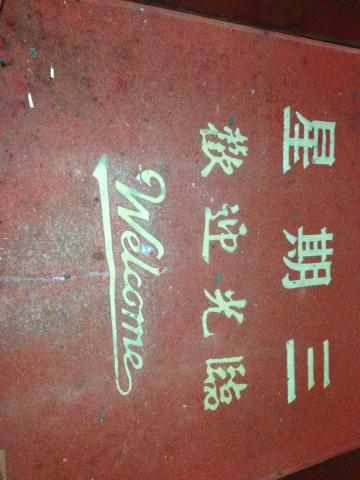 星期三
歡迎光臨
Welcome